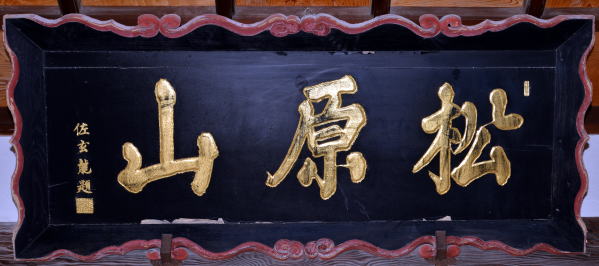 松原山
佐玄龍題